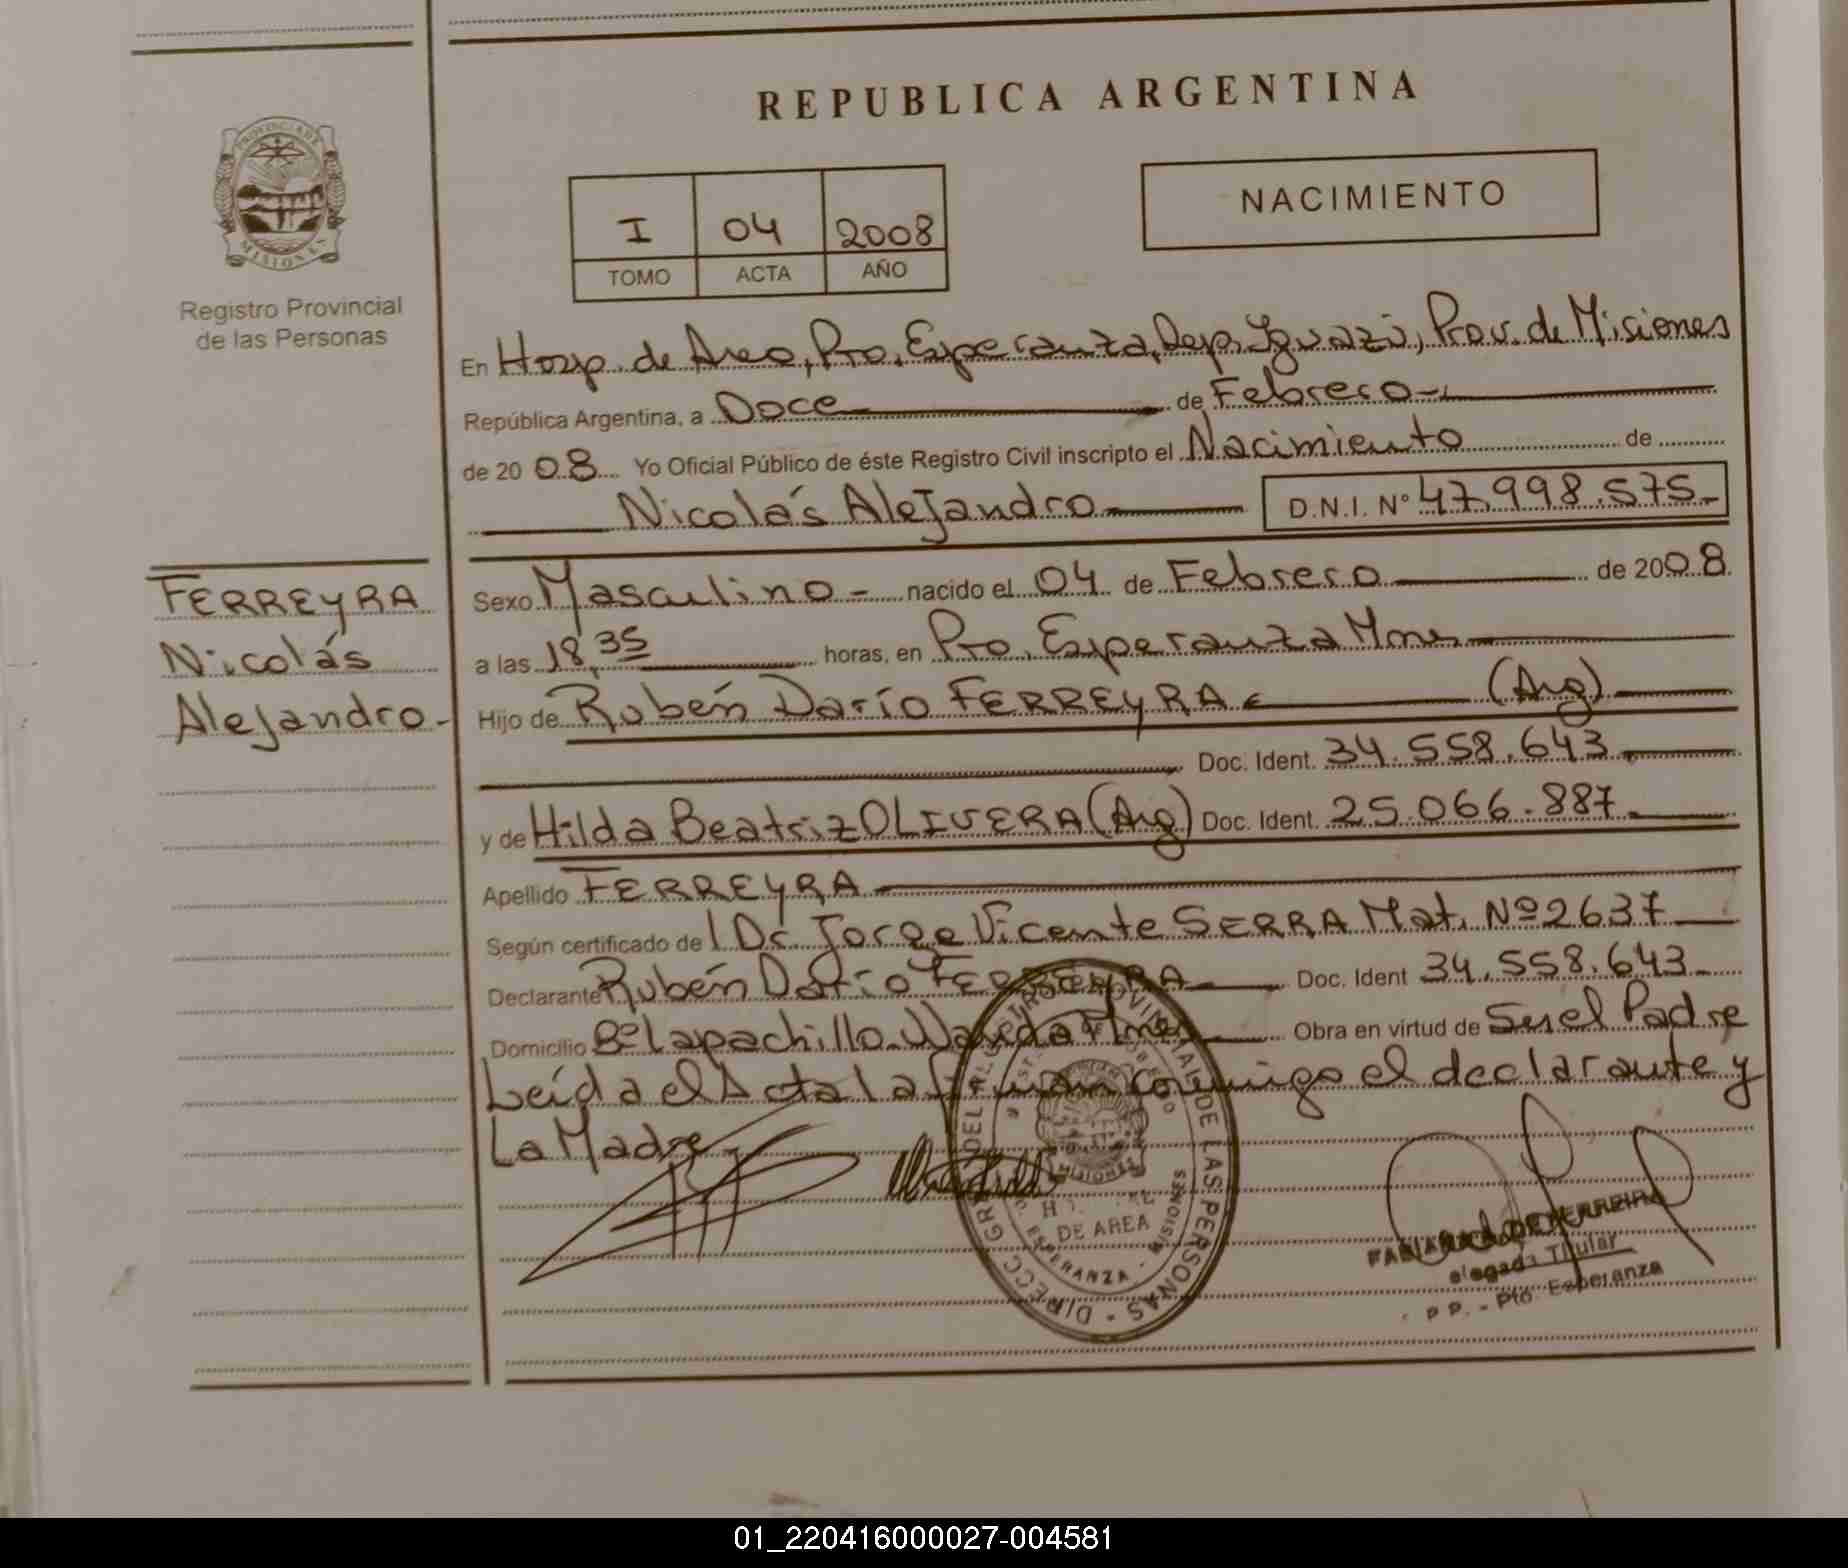 REPUBLICA ARGENTINA
NACIMIENTO
I 04 2008
TOMO ACTA AÑO
PROVINCIA DE
MISIONES
Registro Provincial
de las Personas
En Hosp. de Area, Pto. Esperanza, Dep. Iguazú, Prov. de Misiones
República Argentina, a Doce de Febrero
de 2008 Yo Oficial Público de éste Registro Civil inscripto el Nacimiento de
Nicolás Alejandro D.N.I. Nº 47.998.575
FERREYRA
Nicolás
Alejandro
Sexo Masculino nacido el 04 de Febrero de 2008
a las 18,35 horas, en Pto. Esperanza Mnes
Hijo de Rubén Darío FERREYRA (Arg)
Doc. Ident. 34.558.643
y de Hilda Beatriz OLIVERA (Arg) Doc. Ident. 25.066.887
Apellido FERREYRA
Según certificado del Dr. Jorge Vicente SERRA Mat. Nº 2637
Declarante Rubén Darío FERREYRA Doc. Ident 34.558.643
Domicilio Bº Lapachillo. Wanda Mnes Obra en virtud de Ser el Padre
Leída el Acta la firman conmigo el declarante y
La Madre
REGISTRO PROVINCIAL DE LAS PERSONAS
MISIONES
DE AREA
ESPERANZA - MISIONES
Titular
P.P. - Pto. Esperanza
01_220416000027-004581